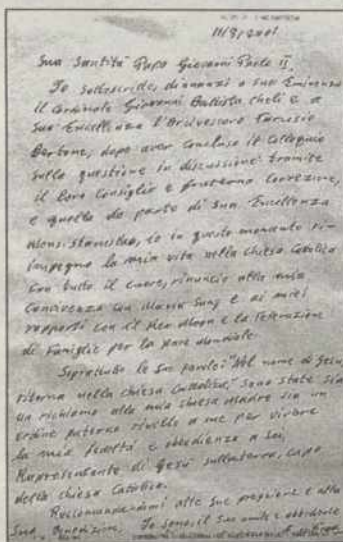 11/8/2001
Sua Santità Papa Giovanni Paolo II,
Io sottoscritto, dinnanzi a sua Eminenza
il Cardinale Giovanni Battista Cheli e a
Sua Eccellenza l'Arcivescovo Tarcisio
Bertone, dopo aver concluso il colloquio
sulla questione in discussione: tramite
il loro Consiglio e fraterna Correzione,
e quello da parte di sua Eccellenza
Mons. Stanislao, io in questo momento rim
impegno la mia vita nella chiesa Cattolica
con tutto il cuore, rinuncio alla mia
Convivenza con Maria Sung e ai miei
rapporti con il Rev Moon e la Federazione
di Famiglie per la pace Mondiale.
Sopratutto le sue parole: "Nel nome di Gesù,
ritorna nella chiesa Cattolica", sono state sia
un richiamo alla mia chiesa Madre sia un
ordine paterno rivolto a me per vivere
la mia fedeltà e obbedienza a lei,
Rapresentante di Gesù sulla terra, capo
della chiesa Cattolica.
Raccomandandomi alle sue preghiere e alla
Sua Benedizione. Io sono, il suo umile e obbediente